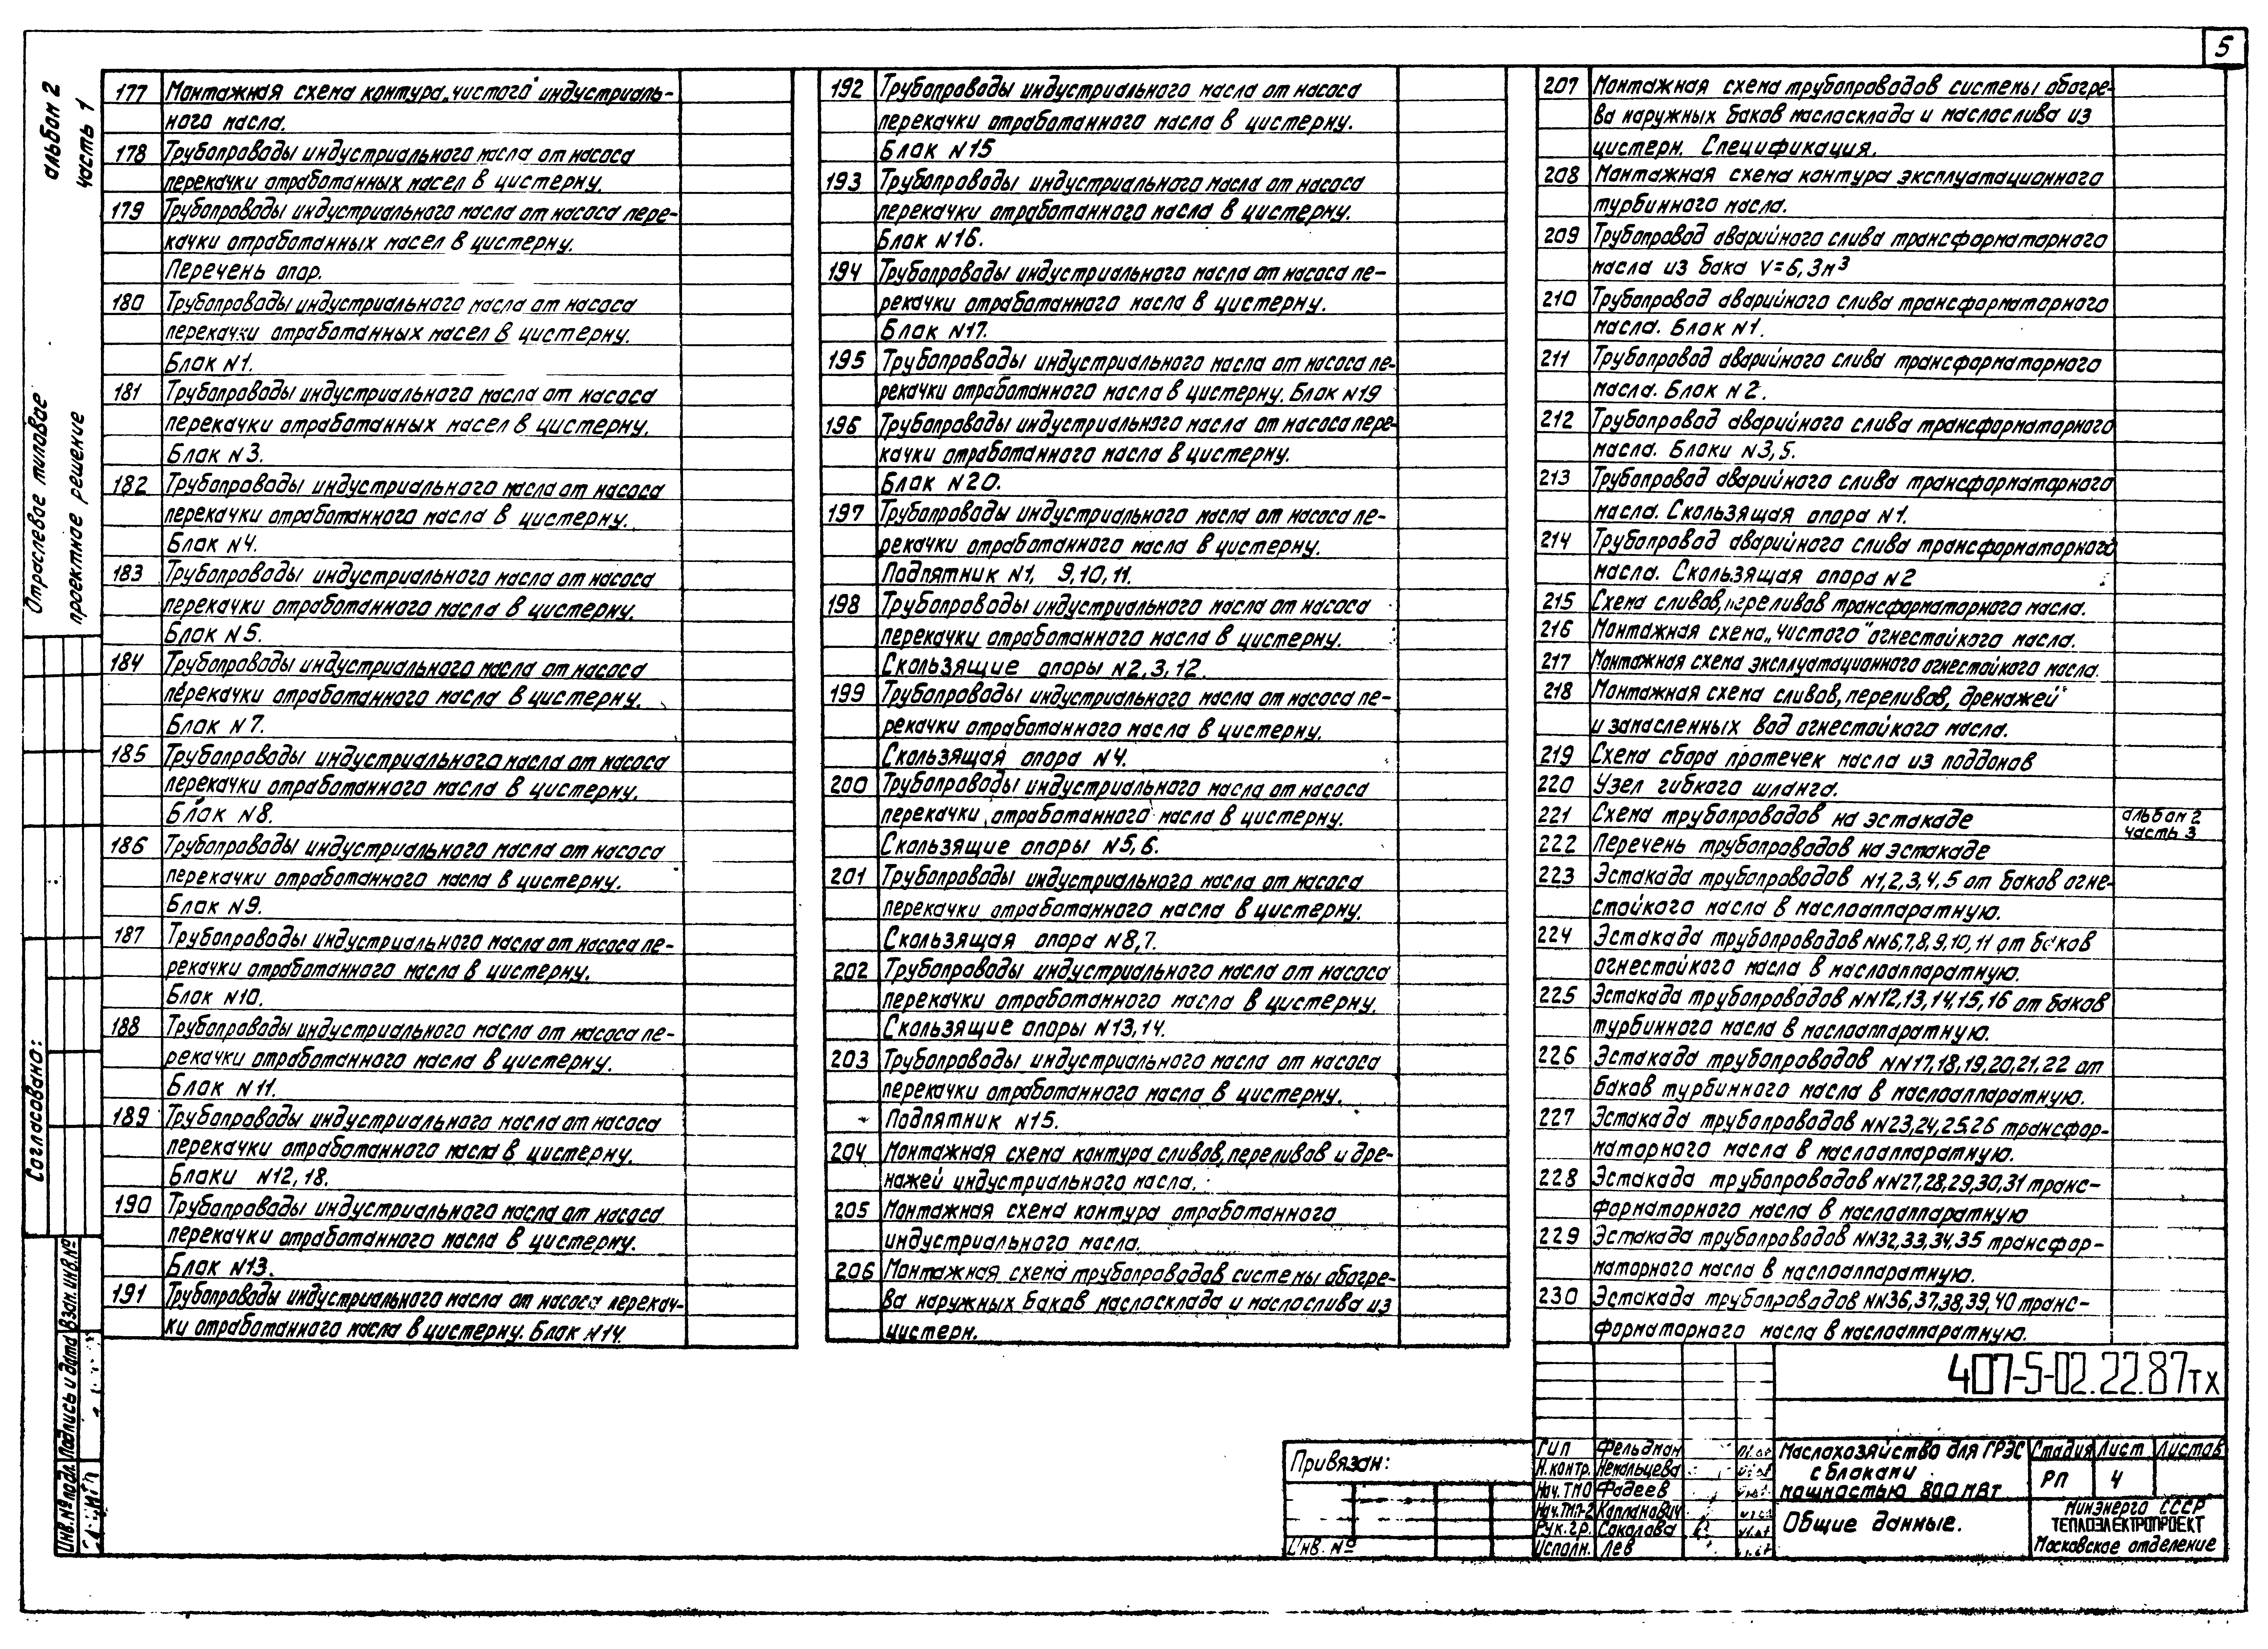 5
альбом 2
часть 1
Отраслевое типовое
проектное решение
177 Монтажная схема контура „чистого" индустриаль-
ного масла.
178 Трубопроводы индустриального масла от насоса
перекачки отработанных масел в цистерну.
179 Трубопроводы индустриального масла от насоса пере-
качки отработанных масел в цистерну.
Перечень опор.
180 Трубопроводы индустриального масла от насоса
перекачки отработанных масел в цистерну.
Блок N1.
181 Трубопроводы индустриального масла от насоса
перекачки отработанных масел в цистерну.
Блок N3.
182 Трубопроводы индустриального масла от насоса
перекачки отработанного масла в цистерну.
Блок N4.
183 Трубопроводы индустриального масла от насоса
перекачки отработанного масла в цистерну.
Блок N5.
184 Трубопроводы индустриального масла от насоса
перекачки отработанного масла в цистерну.
Блок N7.
185 Трубопроводы индустриального масла от насоса
перекачки отработанного масла в цистерну.
Блок N8.
186 Трубопроводы индустриального масла от насоса
перекачки отработанного масла в цистерну.
Блок N9.
187 Трубопроводы индустриального масла от насоса пе-
рекачки отработанного масла в цистерну.
Блок N10.
188 Трубопроводы индустриального масла от насоса пе-
рекачки отработанного масла в цистерну.
Блок N11.
189 Трубопроводы индустриального масла от насоса
перекачки отработанного масла в цистерну.
Блоки N12,18.
190 Трубопроводы индустриального масла от насоса
перекачки отработанного масла в цистерну.
Блок N13.
191 Трубопроводы индустриального масла от насоса перекач-
ки отработанного масла в цистерну. Блок N14.
192 Трубопроводы индустриального масла от насоса
перекачки отработанного масла в цистерну.
Блок N15
193 Трубопроводы индустриального масла от насоса
перекачки отработанного масла в цистерну.
Блок N16.
194 Трубопроводы индустриального масла от насоса пе-
рекачки отработанного масла в цистерну.
Блок N17.
195 Трубопроводы индустриального масла от насоса пе-
рекачки отработанного масла в цистерну. Блок N19
196 Трубопроводы индустриального масла от насоса пере-
качки отработанного масла в цистерну.
Блок N20.
197 Трубопроводы индустриального масла от насоса пе-
рекачки отработанного масла в цистерну.
Подпятник N1, 9,10,11.
198 Трубопроводы индустриального масла от насоса
перекачки отработанного масла в цистерну.
Скользящие опоры N2,3,12.
199 Трубопроводы индустриального масла от насоса пе-
рекачки отработанного масла в цистерну.
Скользящая опора N4.
200 Трубопроводы индустриального масла от насоса
перекачки отработанного масла в цистерну.
Скользящие опоры N5,6.
201 Трубопроводы индустриального масла от насоса
перекачки отработанного масла в цистерну.
Скользящая опора N8,7.
202 Трубопроводы индустриального масла от насоса
перекачки отработанного масла в цистерну.
Скользящие опоры N13,14.
203 Трубопроводы индустриального масла от насоса
перекачки отработанного масла в цистерну.
Подпятник N15.
204 Монтажная схема контура сливов, переливов и дре-
нажей индустриального масла.
205 Монтажная схема контура отработанного
индустриального масла.
206 Монтажная схема трубопроводов системы обогре-
ва наружных баков маслосклада и маслослива из
цистерн.
207 Монтажная схема трубопроводов системы обогре-
ва наружных баков маслосклада и маслослива из
цистерн. Спецификация.
208 Монтажная схема контура эксплуатационного
турбинного масла.
209 Трубопровод аварийного слива трансформаторного
масла из бака V=6,3м³
210 Трубопровод аварийного слива трансформаторного
масла. Блок N1.
211 Трубопровод аварийного слива трансформаторного
масла. Блок N2.
212 Трубопровод аварийного слива трансформаторного
масла. Блоки N3,5.
213 Трубопровод аварийного слива трансформаторного
масла. Скользящая опора N1.
214 Трубопровод аварийного слива трансформаторного
масла. Скользящая опора N2
215 Схема сливов, переливов трансформаторного масла.
216 Монтажная схема „чистого" огнестойкого масла.
217 Монтажная схема эксплуатационного огнестойкого масла.
218 Монтажная схема сливов, переливов, дренажей
и замасленных вод огнестойкого масла.
219 Схема сбора протечек масла из поддонов
220 Узел гибкого шланга.
221 Схема трубопроводов на эстакаде альбом 2
часть 3
222 Перечень трубопроводов на эстакаде
223 Эстакада трубопроводов N1,2,3,4,5 от баков огне-
стойкого масла в маслоаппаратную.
224 Эстакада трубопроводов NN6,7,8,9,10,11 от баков
огнестойкого масла в маслоаппаратную.
225 Эстакада трубопроводов NN12,13,14,15,16 от баков
турбинного масла в маслоаппаратную.
226 Эстакада трубопроводов NN17,18,19,20,21,22 от
баков турбинного масла в маслоаппаратную.
227 Эстакада трубопроводов NN23,24,25,26 трансфор-
маторного масла в маслоаппаратную.
228 Эстакада трубопроводов NN27,28,29,30,31 транс-
форматорного масла в маслоаппаратную
229 Эстакада трубопроводов NN32,33,34,35 трансфор-
маторного масла в маслоаппаратную.
230 Эстакада трубопроводов NN36,37,38,39,40 транс-
форматорного масла в маслоаппаратную.
Согласовано:
Взам. инв.№
Подпись и дата
Инв.№ подл.
Привязан:
Инв. №
407-5-02.22.87 ТХ
ГИП Фельдман
Н.контр. Немальцева
Нач.ТМО Фадеев
Нач.ТМП-2 Капланович
Рук.гр. Соколова
Исполн. Лев
Маслохозяйство для ГРЭС
с блоками
мощностью 800 МВт
Стадия Лист Листов
РП 4
Общие данные.
Минэнерго СССР
ТЕПЛОЭЛЕКТРОПРОЕКТ
Московское отделение